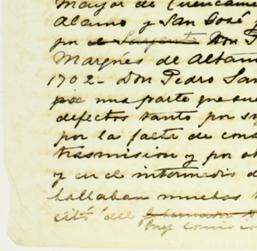 Mayor de Cuencamé
Alamo y San José y
por el Sargento Don P
Marqués de Altam
1702 - Don Pedro San
pie una parte que sue
defectos tanto por su
por la falta de cons
trasmision y por ot
y en el intermedio d
hallaban muchas t
citó del
muy como co